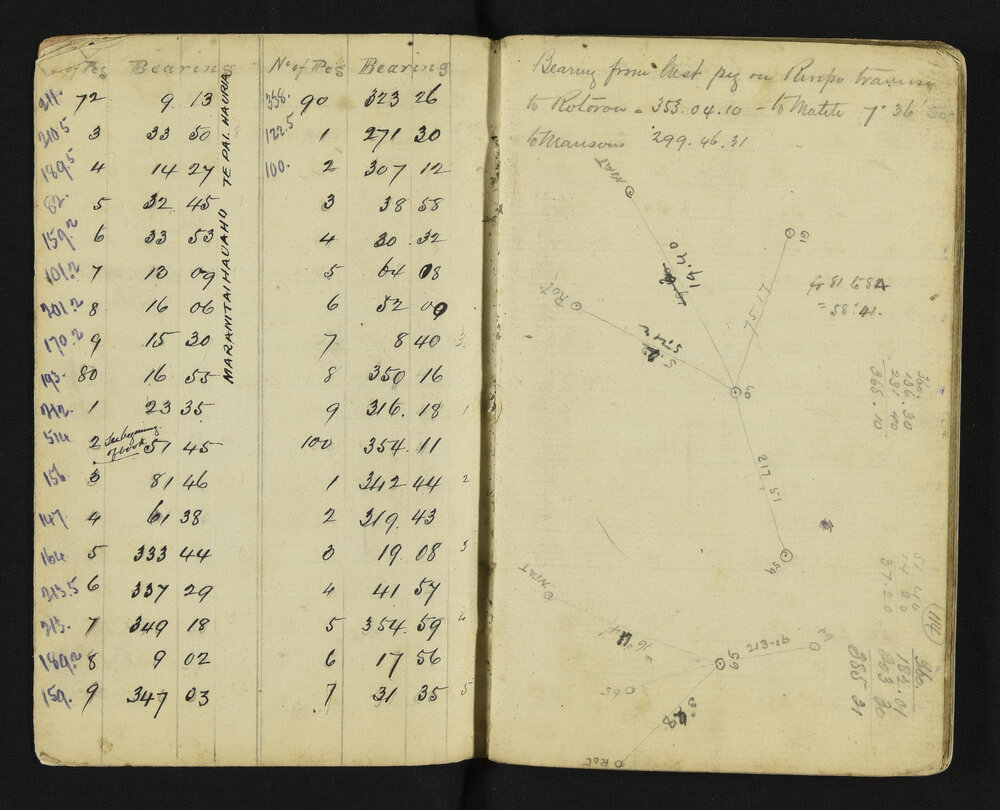 of Peg Bearing No of Peg Bearing
211. 72 9 13 338. 90 323 26
210.5 3 33 50 122.5 1 271 30
189.5 4 14 27 100. 2 307 12
82. 5 32 45 3 38 58
159.2 6 33 53 4 30 32
101.2 7 13 09 5 64 08
201.2 8 16 06 6 52 00
170.2 9 15 30 7 8 40
193. 80 16 55 8 350 16
212. 1 23 35 9 316. 18 1
514 2 See beginning of book 51 45 100 354. 11
156 3 81 46 1 342 44 2
147. 4 61 38 2 319. 43
164 5 333 44 3 19. 08 3
213.5 6 337 29 4 41 57
213. 7 349 18 5 354. 59 4
189.2 8 9 02 6 17 56
159. 9 347 03 7 31 35 5
MARAMITAIHAUAHU TE PAI. HAURIA
Bearing from West peg on
to Rotorua = 353.04.10 - to Matete 7° 36'
to Mansons 299. 46. 31
MAT
61
Rot
14.40
75.17
fr 81 to 84
= 58° 41.
63
217 51
59
360.
136.30
231 40
368.10
MAT
213-16
65
065
Rot
51 40
(114)
360.
182.01
203 30
385 31